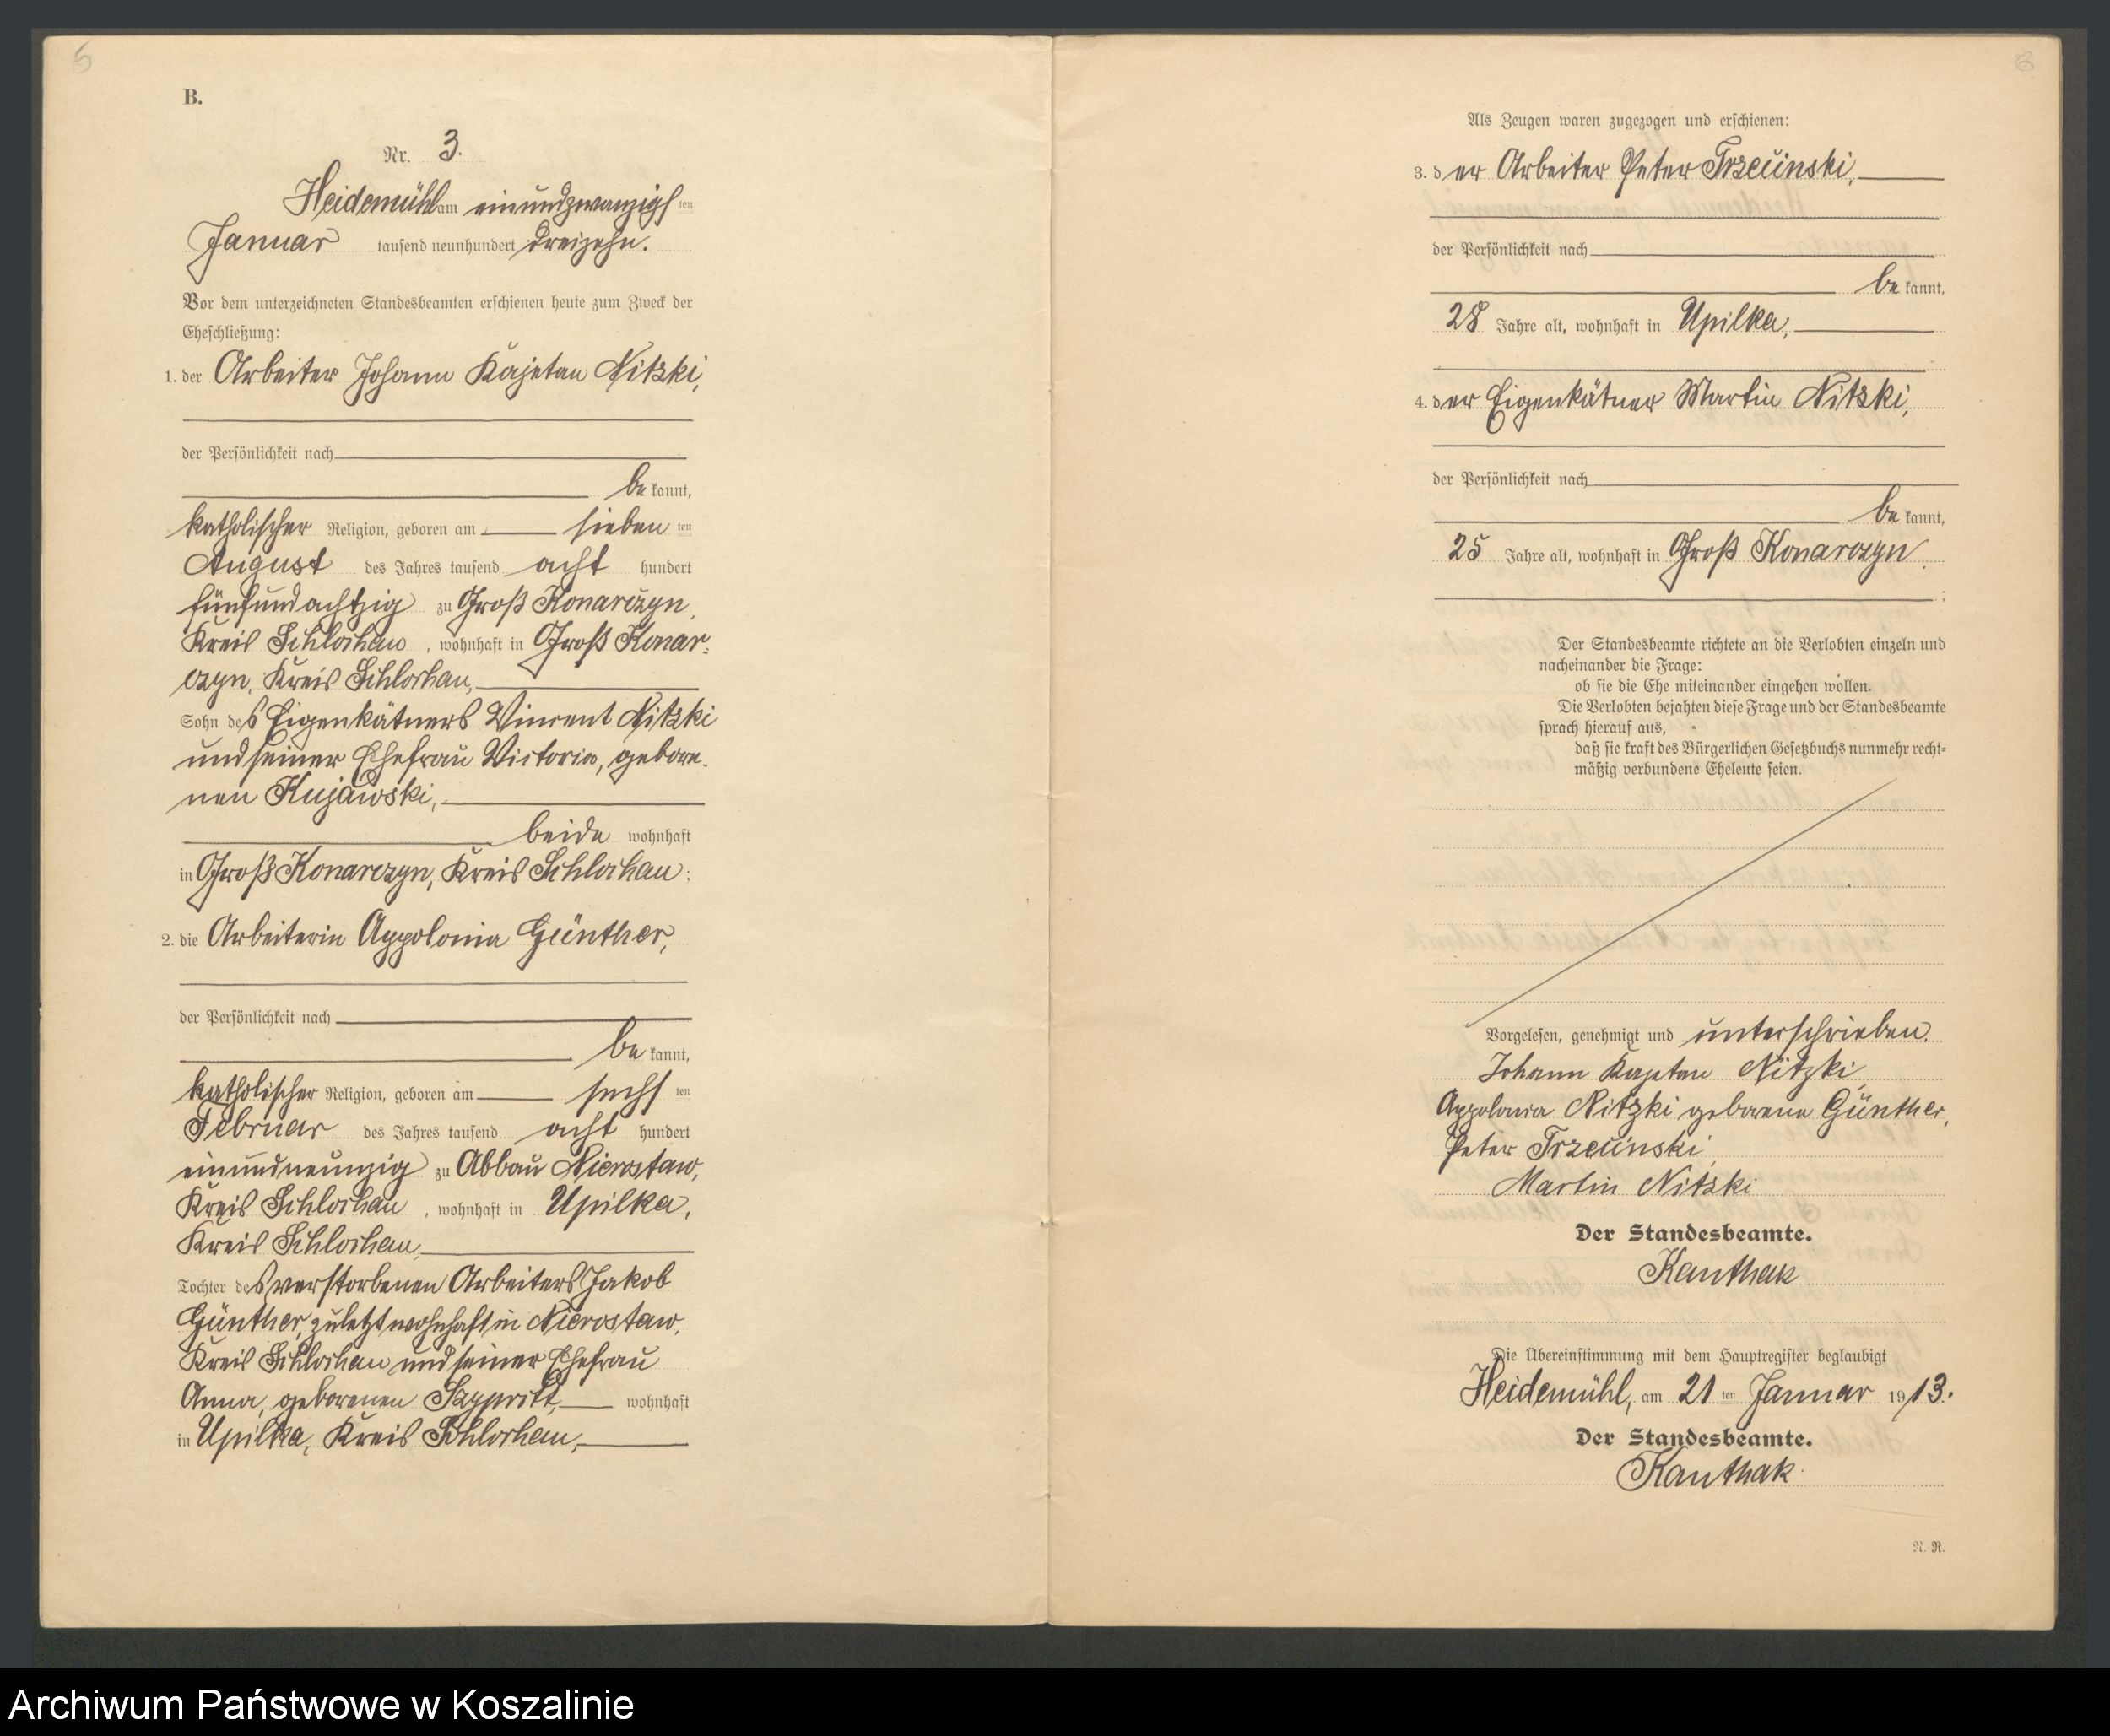 5
B.
Nr. 3.
Heidemühl am einundzwanzigsten
Januar tausend neunhundert dreizehn.
Vor dem unterzeichneten Standesbeamten erschienen heute zum Zweck der
Eheschließung:
1. der Arbeiter Johann Kajetan Nitzki,
der Persönlichkeit nach
bekannt,
katholischer Religion, geboren am siebenten
August des Jahres tausend achthundert
fünfundachtzig zu Groß Konarczyn,
Kreis Schlochau, wohnhaft in Groß Konar-
czyn, Kreis Schlochau,
Sohn des Eigenkätners Vincent Nitzki
und seiner Ehefrau Victoria, gebore-
nen Kujawski,
beide wohnhaft
in Groß Konarczyn, Kreis Schlochau;
2. die Arbeiterin Appolonia Günther,
der Persönlichkeit nach
bekannt,
katholischer Religion, geboren am sechsten
Februar des Jahres tausend achthundert
einundneunzig zu Abbau Nierostaw,
Kreis Schlochau, wohnhaft in Upilka,
Kreis Schlochau,
Tochter des verstorbenen Arbeiters Jakob
Günther, zuletzt wohnhaft in Nierostaw,
Kreis Schlochau und seiner Ehefrau
Anna, geborenen wohnhaft
in Upilka, Kreis Schlochau,
Als Zeugen waren zugezogen und erschienen:
3. der Arbeiter Peter Trzcinski,
der Persönlichkeit nach
bekannt,
28 Jahre alt, wohnhaft in Upilka,
4. der Eigenkätner Martin Nitzki,
der Persönlichkeit nach
bekannt,
25 Jahre alt, wohnhaft in Groß Konarczyn.
Der Standesbeamte richtete an die Verlobten einzeln und
nacheinander die Frage:
ob sie die Ehe miteinander eingehen wollen.
Die Verlobten bejahten diese Frage und der Standesbeamte
sprach hierauf aus,
daß sie kraft des Bürgerlichen Gesetzbuchs nunmehr recht-
mäßig verbundene Eheleute seien.
Vorgelesen, genehmigt und unterschrieben.
Johann Kajetan Nitzki,
Appolonia Nitzki geborene Günther,
Peter Trzcinski,
Martin Nitzki
Der Standesbeamte.
Kanthak
Die Übereinstimmung mit dem Hauptregister beglaubigt
Heidemühl, am 21ten Januar 1913.
Der Standesbeamte.
Kanthak.
N. N.
Archiwum Państwowe w Koszalinie